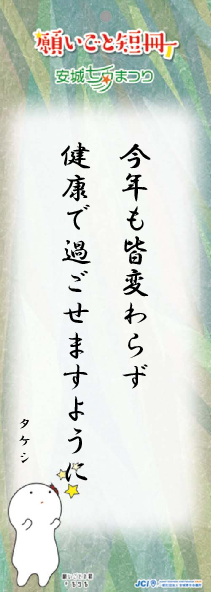 願いごと短冊
安城七夕まつり
今年も皆変わらず
健康で過ごせますように
タケシ
JCI